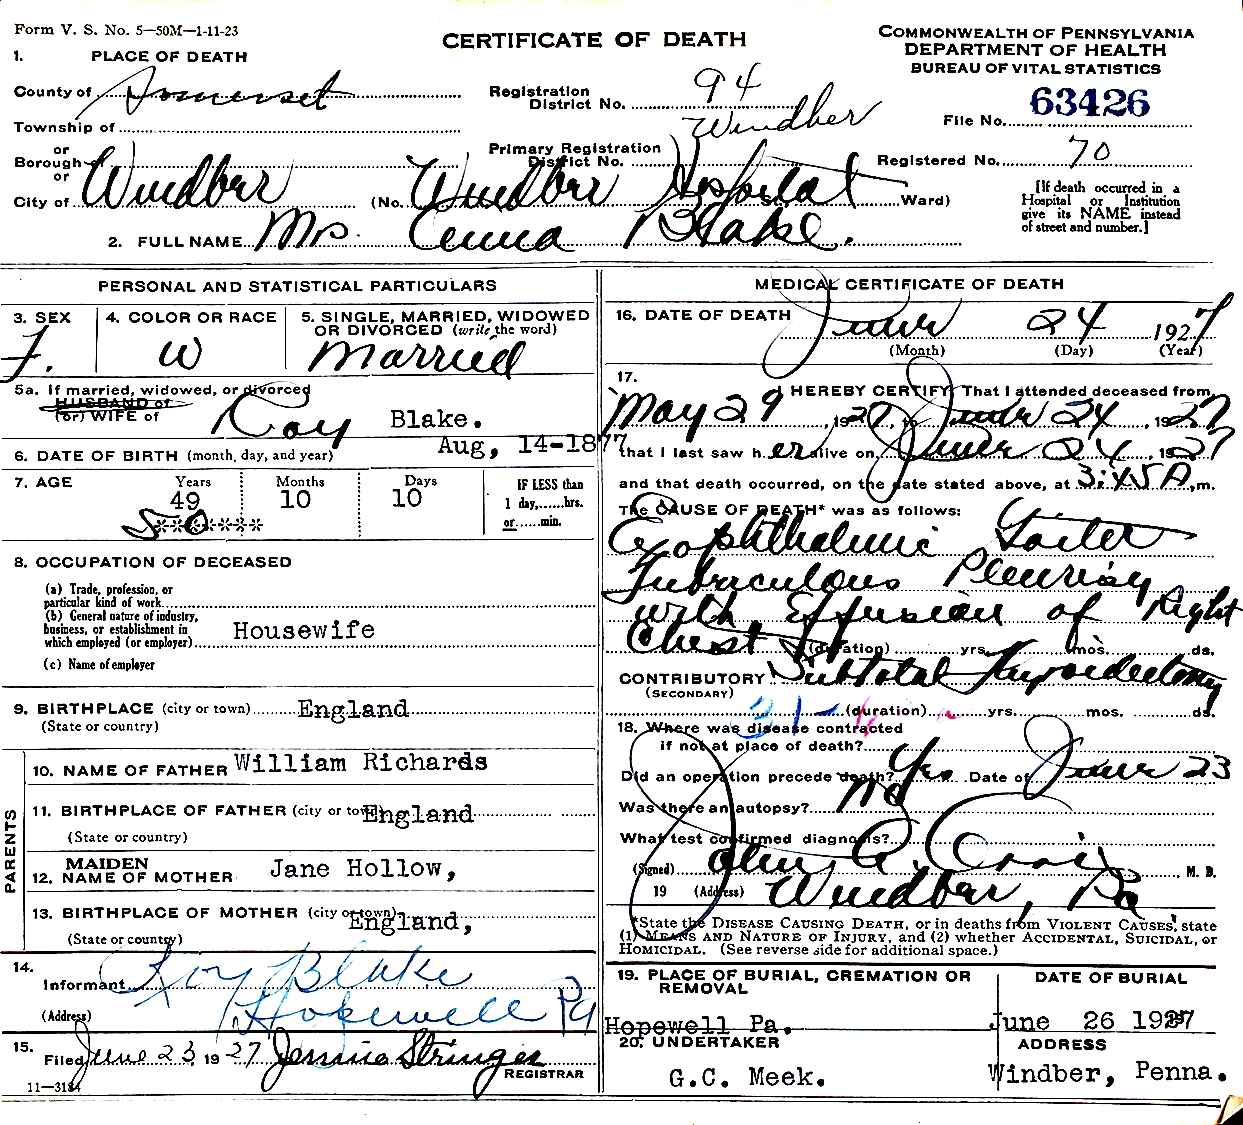 Form V. S. No. 5—50M—1-11-23
CERTIFICATE OF DEATH
COMMONWEALTH OF PENNSYLVANIA
DEPARTMENT OF HEALTH
BUREAU OF VITAL STATISTICS
1. PLACE OF DEATH
County of Somerset
Registration District No. 94
File No. 63426
Township of
or
Borough of
or
City of Windber
Primary Registration District No. Windber
Registered No. 70
(No. Windber Hospital Ward)
[If death occurred in a Hospital or Institution give its NAME instead of street and number.]
2. FULL NAME Mrs. Emma Blake.
PERSONAL AND STATISTICAL PARTICULARS
3. SEX F.
4. COLOR OR RACE W
5. SINGLE, MARRIED, WIDOWED OR DIVORCED (write the word) Married
5a. If married, widowed, or divorced
HUSBAND of
(or) WIFE of Roy Blake.
6. DATE OF BIRTH (month, day, and year) Aug, 14-1877
7. AGE Years 49 Months 10 Days 10 IF LESS than 1 day,......hrs. or......min.
50
8. OCCUPATION OF DECEASED
(a) Trade, profession, or particular kind of work
(b) General nature of industry, business, or establishment in which employed (or employer) Housewife
(c) Name of employer
9. BIRTHPLACE (city or town) England
(State or country)
PARENTS
10. NAME OF FATHER William Richards
11. BIRTHPLACE OF FATHER (city or town) England
(State or country)
12. MAIDEN NAME OF MOTHER Jane Hollow,
13. BIRTHPLACE OF MOTHER (city or town) England,
(State or country)
14. Informant Roy Blake
(Address) Hopewell Pa
15. Filed June 23 1927 Jemina Stringer
REGISTRAR
11—3184
MEDICAL CERTIFICATE OF DEATH
16. DATE OF DEATH June 24 1927
(Month) (Day) (Year)
17. I HEREBY CERTIFY That I attended deceased from
May 29, 1927, to June 24, 1927
that I last saw her alive on June 24, 1927
and that death occurred, on the date stated above, at 3:45 A.m.
The CAUSE OF DEATH* was as follows:
Exophthalmic Goiter
Tubraculous Pleurisy
with Effusion of Right
Chest (duration) yrs. mos. ds.
CONTRIBUTORY Subtotal Thyroidectomy
(SECONDARY)
31- (duration) yrs. mos. ds.
18. Where was disease contracted
if not at place of death?
Did an operation precede death? Yes Date of June 23
Was there an autopsy? No
What test confirmed diagnosis?
(Signed) John A. Craig M. D.
19 (Address) Windber, Pa
*State the DISEASE CAUSING DEATH, or in deaths from VIOLENT CAUSES, state
(1) MEANS AND NATURE OF INJURY, and (2) whether ACCIDENTAL, SUICIDAL, or
HOMICIDAL. (See reverse side for additional space.)
19. PLACE OF BURIAL, CREMATION OR REMOVAL
DATE OF BURIAL
Hopewell Pa.
June 26 1927
20. UNDERTAKER
ADDRESS
G.C. Meek.
Windber, Penna.